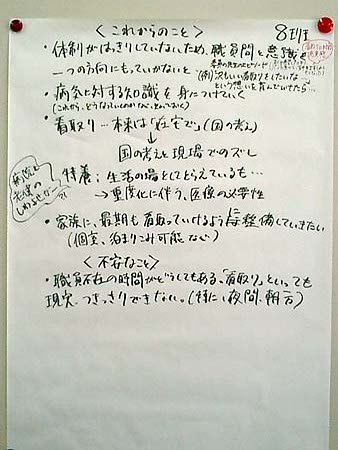 <これからのこと> 8班
・体制がはっきりしていないため、職員間と意識を
一つの方向にもっていかないと
(例)次もいい看取りをしたいな
という想いを育んでいけたら…
・病気に対する知識を身につけていく
(これから、どうなっていくのか など、とらえておく)
・看取り…本来は「在宅で」(国の考え)
↓
国の考えと現場でのズレ
特養:生活の場としてとらえているも…
→重度化に伴う、医療の必要性
病院と
老健の
・家族に、最期も看取っていけるよう 整備していきたい
(個室、泊まりこみ可能 など)
<不安なこと>
・職員不在の時間がどうしてもある。「看取り」といっても
現実、つきっきりできない。(特に、夜間、朝方)